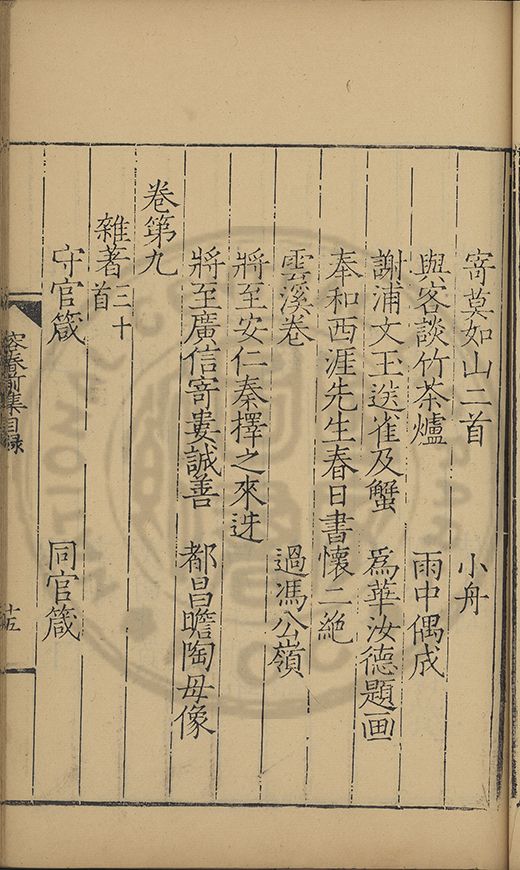 寄莫如山二首 小舟
與客談竹茶爐 雨中偶成
謝浦文玉送雀及蟹 爲華汝德題画
奉和西涯先生春日書懷二絶
雲溪卷 過馮公嶺
將至安仁秦擇之來迓
將至廣信寄婁誠善 都昌瞻陶母像
卷第九
雜著三十首
守官箴 同官箴
容春前集目録 十五